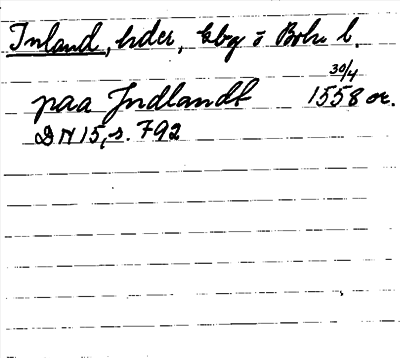 Inland, hder, kbg i Bohu l.
paa Jndlandt 30/4 1558 or.
DN 15, s. 792